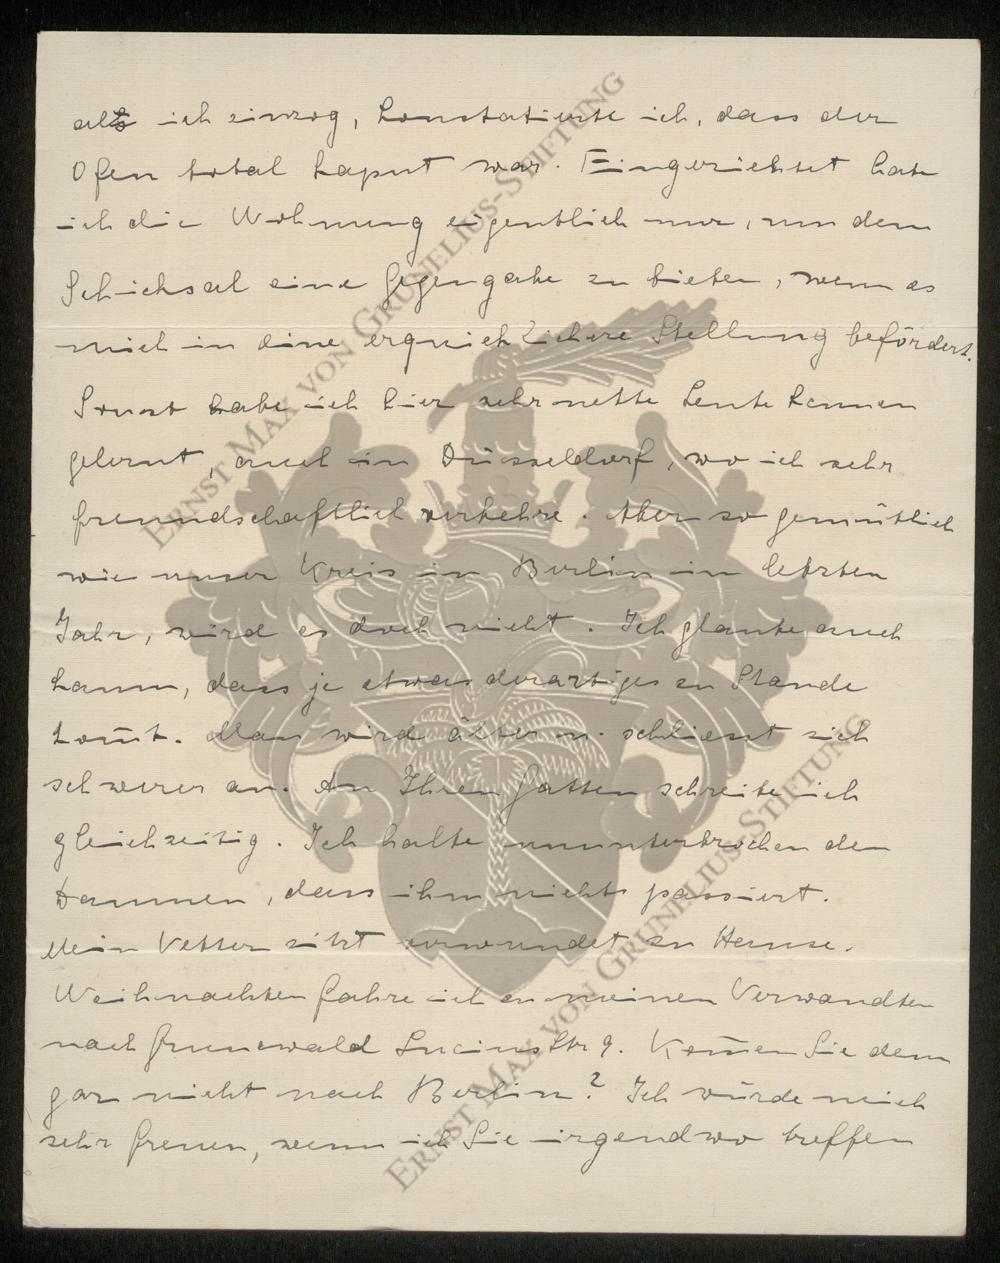 als ich einzog, konstatierte ich, dass der
Ofen total kaput war. Eingerichtet habe
ich die Wohnung eigentlich nur, um dem
Schicksal eine Gegengabe zu bieten, wenn es
mich in eine erquicklichere Stellung befördert.
Sonst habe ich hier sehr nette Leute kennen
gelernt, auch in Düsseldorf, wo ich sehr
freundschaftlich verkehre. Aber so gemütlich
wie unser Kreis in Berlin im letzten
Jahr, wird es doch nicht. Ich glaube auch
kaum, dass je etwas derartiges zu Stande
kom̄t. Man wird älter u. schliesst sich
schwerer an. An Ihren Gatten schreibe ich
gleichzeitig. Ich halte ununterbrochen den
Daumen, dass ihm nichts passiert.
Mein Vetter sitzt verwundet zu Hause.
Weihnachten fahre ich zu meinen Verwandten
nach Grunewald Luciusstr 9. Kom̄en Sie denn
gar nicht nach Berlin? Ich würde mich
sehr freuen, wenn ich Sie irgendwo treffen
ERNST MAX VON GRUNELIUS-STIFTUNG
ERNST MAX VON GRUNELIUS-STIFTUNG